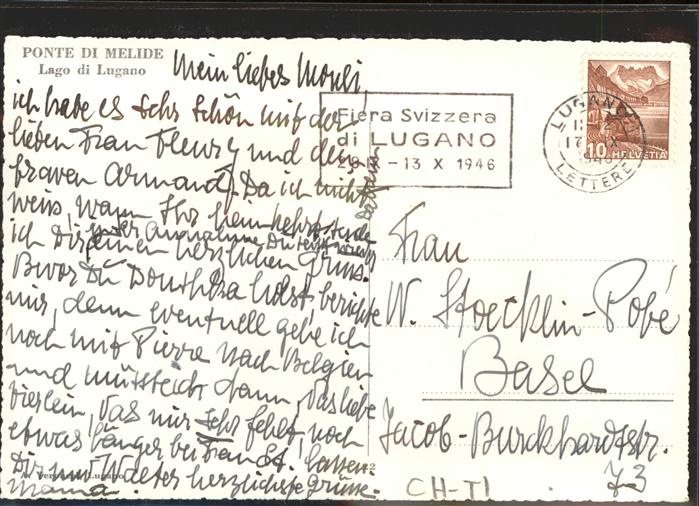 PONTE DI MELIDE
Lago di Lugano
Mein liebes Mouli,
ich habe es sehr schön mit der
lieben Frau Fleury und dem
braven Armand. Da ich nicht
weiss, wann Ihr heimkehrt, sende
in der Annahme Du seist wieder
daheim
ich Dir einen herzlichen Gruss.
Bevor Du holst, berichte
mir, denn eventuell gehe ich
noch mit Pierre nach Belgien
und müsstest dann, das liebe
Tierlein, das mir sehr fehlt, noch
etwas länger bei Frau St. lassen.
Dir und Walter herzlichste Grüsse.
Mama.
Fiera Svizzera
di LUGANO
- 13 X 1946
LUGANO
LETTERE
10 HELVETIA
Frau
W. Stoecklin-Pobé
Basel
Jacob-Burckhardtstr.
73
CH-TI